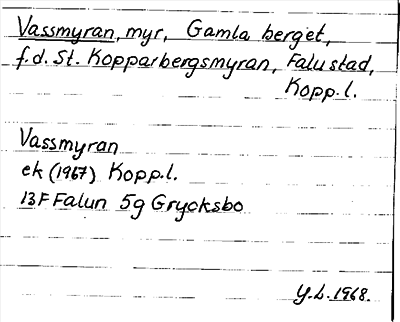 Vassmyran, myr, Gamla berget,
f.d. St. Kopparbergsmyran, Falu stad,
Kopp.l.
Vassmyran
ek (1967) Kopp.l.
13F Falun 5g Grycksbo
Y.L. 1968.